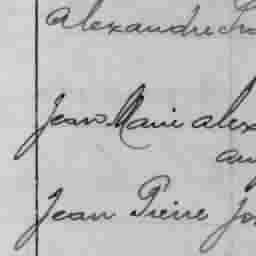 Alexandre
Jean Marie alex
Jean Pierre Jo